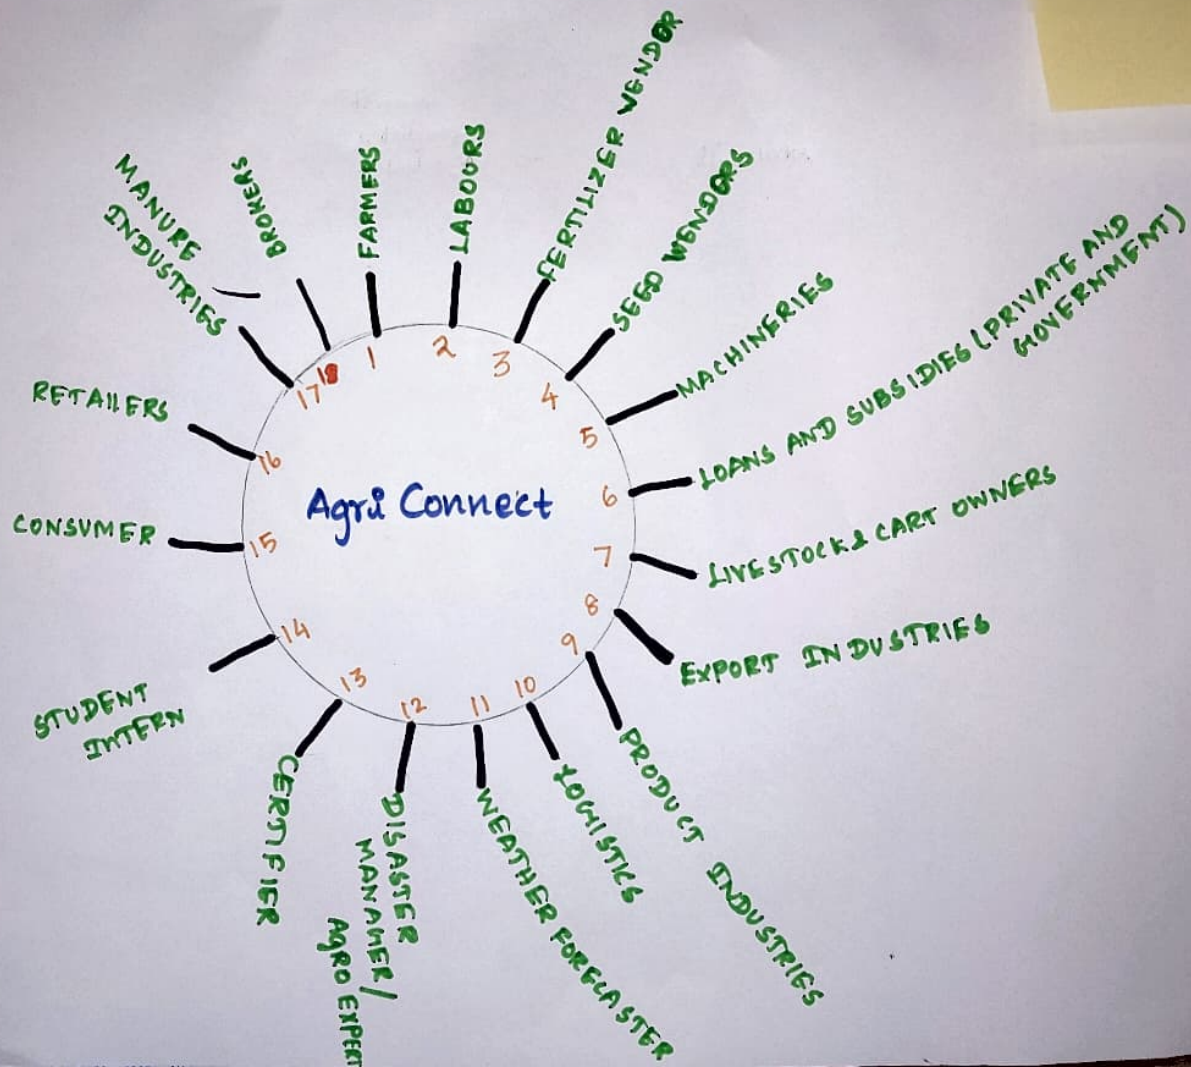 Agri Connect
1 FARMERS
2 LABOURS
3 FERTILIZER VENDOR
4 SEED VENDORS
5 MACHINERIES
6 LOANS AND SUBSIDIES (PRIVATE AND
GOVERNMENT)
7 LIVESTOCK & CART OWNERS
8 EXPORT INDUSTRIES
9 PRODUCT INDUSTRIES
10 LOGISTICS
11 WEATHER FORECASTER
12 DISASTER
MANAGER/
AGRO EXPERT
13 CERTIFIER
14 STUDENT
INTERN
15 CONSUMER
16 RETAILERS
17 MANURE
INDUSTRIES
18 BROKERS